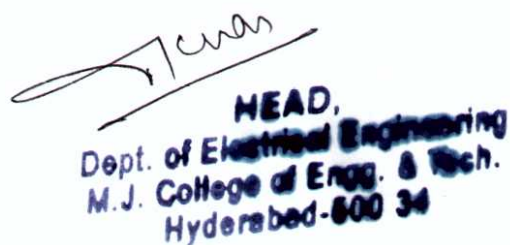 HEAD,
Dept. of Electrical Engineering
M.J. College of Engg. & Tech.
Hyderabad-500 34